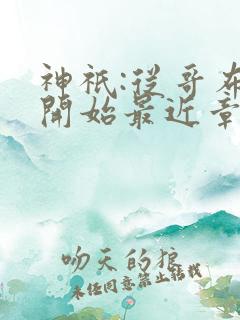 神祇:從哥布
開始最近章
吻天的狼
未經同意禁止轉載